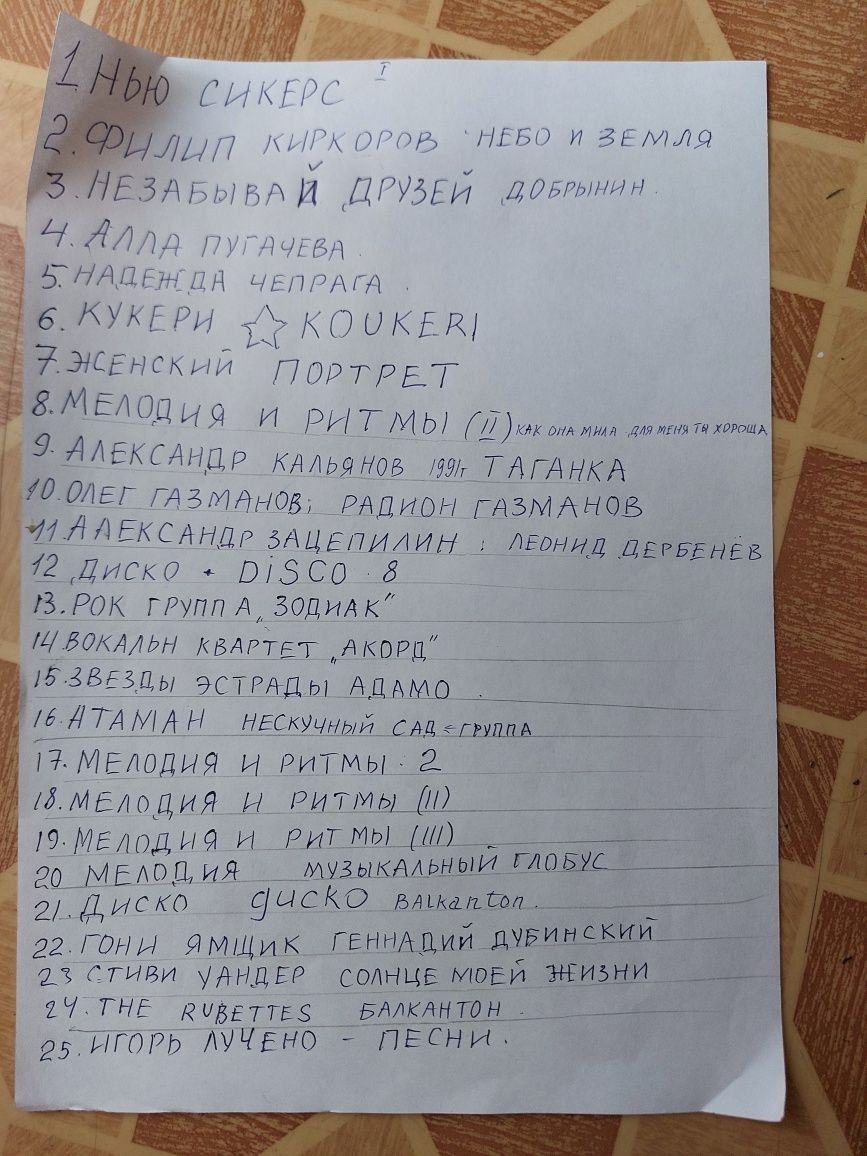 1 НЬЮ СИКЕРС I
2. ФИЛИП КИРКОРОВ НЕБО И ЗЕМЛЯ
3. НЕЗАБЫВАЙ ДРУЗЕЙ ДОБРЫНИН.
4. АЛЛА ПУГАЧЕВА.
5. НАДЕЖДА ЧЕПРАГА.
6. КУКЕРИ ☆ KOUKERI
7. ЖЕНСКИЙ ПОРТРЕТ
8. МЕЛОДИЯ И РИТМЫ (II) КАК ОНА МИЛА ДЛЯ МЕНЯ ТЫ ХОРОША
9. АЛЕКСАНДР КАЛЬЯНОВ 1991г ТАГАНКА
10. ОЛЕГ ГАЗМАНОВ; РАДИОН ГАЗМАНОВ
11. АЛЕКСАНДР ЗАЦЕПИЛИН; ЛЕОНИД ДЕРБЕНЁВ
12 ДИСКО • DiSCO 8
13. РОК ГРУППА „ЗОДИАК"
14 ВОКАЛЬН КВАРТЕТ „АКОРД"
15. ЗВЕЗДЫ ЭСТРАДЫ АДАМО.
16. АТАМАН НЕСКУЧНЫЙ САД = ГРУППА
17. МЕЛОДИЯ И РИТМЫ. 2
18. МЕЛОДИЯ И РИТМЫ (II)
19. МЕЛОДИЯ И РИТМЫ (III)
20 МЕЛОДИЯ МУЗЫКАЛЬНЫЙ ГЛОБУС
21. ДИСКО диско BALkanton.
22. ГОНИ ЯМЩИК ГЕННАДИЙ ДУБИНСКИЙ
23 СТИВИ УАНДЕР СОЛНЦЕ МОЕЙ ЖИЗНИ
24. THE RUBETTES БАЛКАНТОН.
25. ИГОРЬ ЛУЧЕНО - ПЕСНИ.